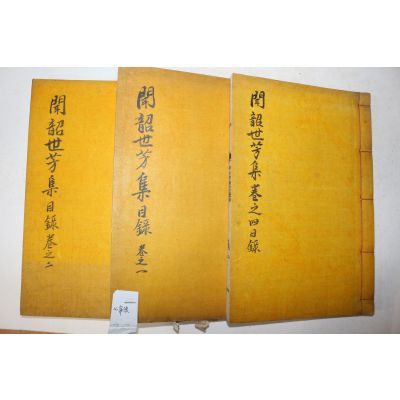 聞韶世芳集卷之四目錄
聞韶世芳集目錄 卷之一
聞韶世芳集目錄卷之二